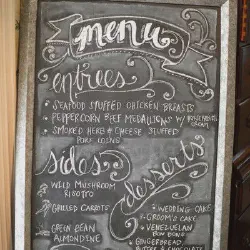 menu
entrees
* SEAFOOD STUFFED CHICKEN BREASTS
* PEPPERCORN BEEF MEDALLIONS W/
CREAM
* SMOKED HERB & CHEESE STUFFED
PORK LOINS
sides
* WILD MUSHROOM
RISOTTO
* GRILLED CARROTS
* GREEN BEAN
ALMONDINE
desserts
* WEDDING CAKE
* GROOM'S CAKE
* VENEZUELAN
BON BONS
* GINGERBREAD
BUTTER & CHOCOLATE